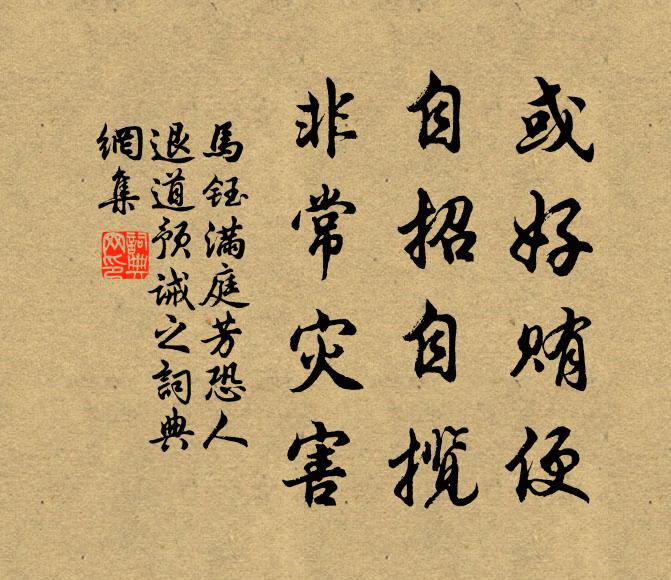 或好賄便
自招自攬
非常灾害
馬鈺满庭芳恐人
退道预誡之詞典
網集
詞典网印